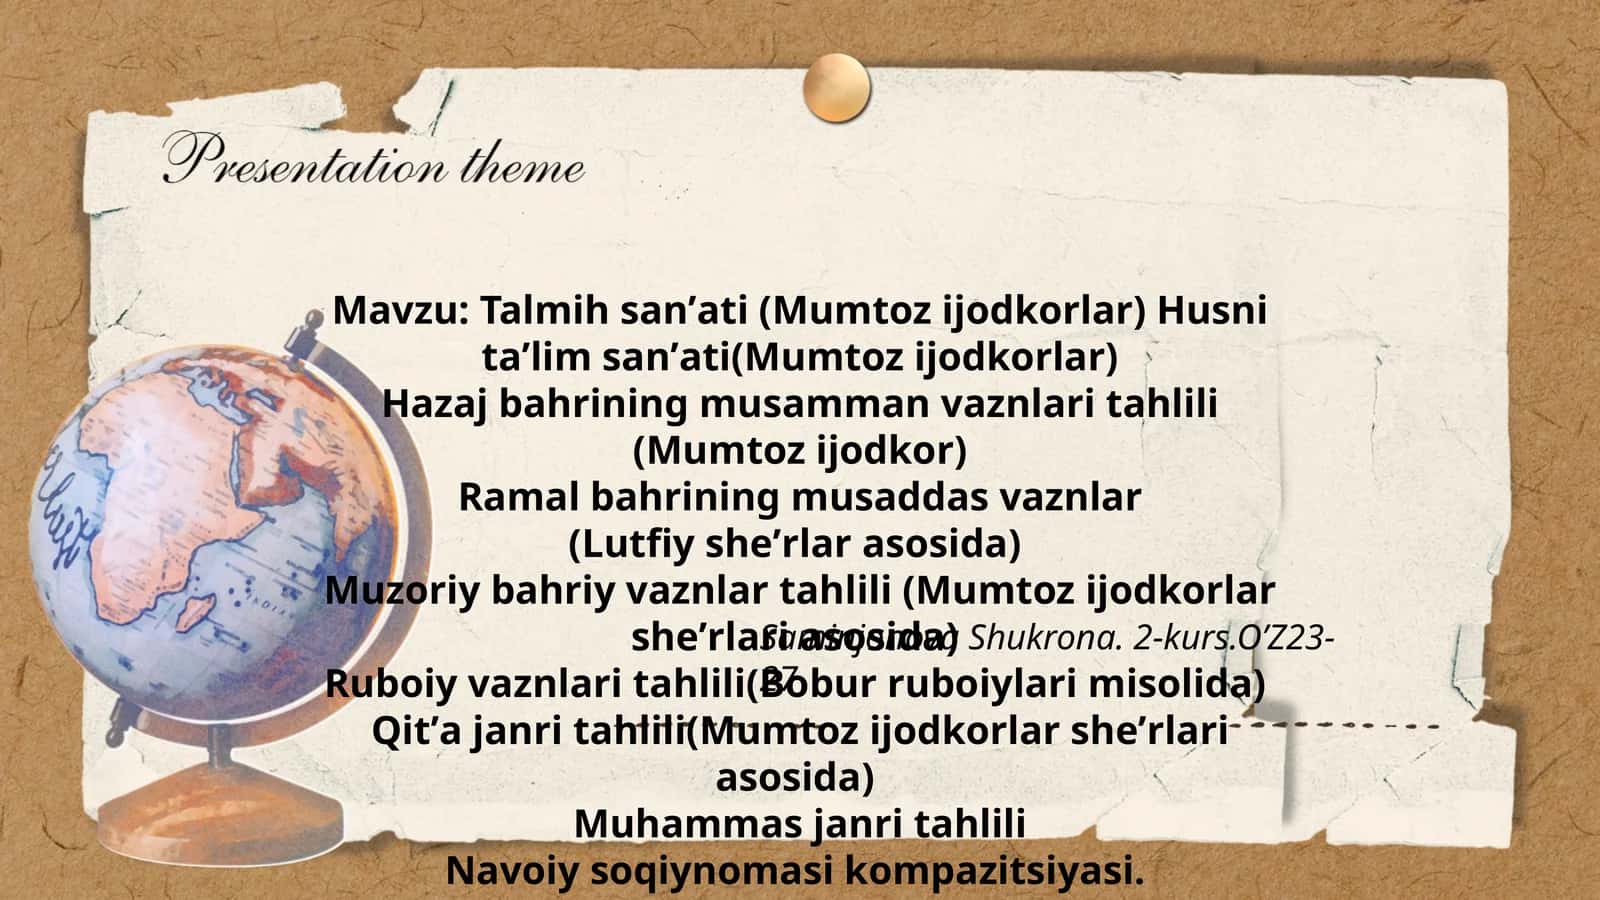 Presentation theme
Mavzu: Talmih san’ati (Mumtoz ijodkorlar) Husni
ta’lim san’ati(Mumtoz ijodkorlar)
Hazaj bahrining musamman vaznlari tahlili
(Mumtoz ijodkor)
Ramal bahrining musaddas vaznlar
(Lutfiy she’rlar asosida)
Muzoriy bahriy vaznlar tahlili (Mumtoz ijodkorlar
she’rlari asosida)
Shukrona. 2-kurs.O’Z23-
Ruboiy vaznlari tahlili(Bobur ruboiylari misolida)
Qit’a janri tahlili(Mumtoz ijodkorlar she’rlari
asosida)
Muhammas janri tahlili
Navoiy soqiynomasi kompazitsiyasi.